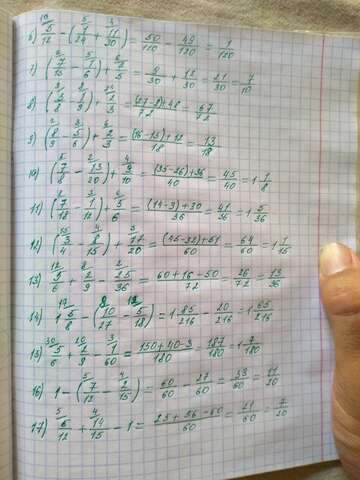 6) 5/12 - (1/24 + 11/30) = 50/120 - 49/120 = 1/120
7) (7/15 - 1/6) + 2/5 = 9/30 + 12/30 = 21/30 = 7/10
8) (3/8 - 1/9) + 2/3 = (27-8)+48/72 = 67/72
9) (8/9 - 5/6) + 2/3 = (16-15)+12/18 = 13/18
10) (7/8 - 13/20) + 9/10 = (35-26)+36/40 = 45/40 = 1 1/8
11) (7/18 - 1/12) + 5/6 = (14-3)+30/36 = 41/36 = 1 5/36
12) (3/4 - 8/15) + 17/20 = (45-32)+51/60 = 64/60 = 1 1/15
13) 5/6 + 2/9 - 25/36 = 60+16-50/72 = 26/72 = 13/36
14) 1 5/8 - (10/27 - 5/18) = 1 85/216 - 20/216 = 1 65/216
15) 5/6 + 2/9 - 1/60 = 150+40-3/180 = 187/180 = 1 7/180
16) 1 - (7/12 - 2/15) = 60/60 - 27/60 = 33/60 = 11/20
17) 5/12 + 14/15 - 1 = 25+56-60/60 = 21/60 = 7/20